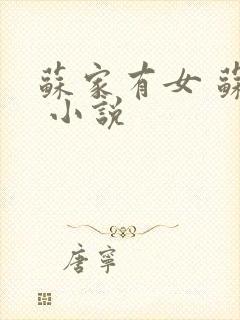 蘇家有女 蘇
小說
唐寧